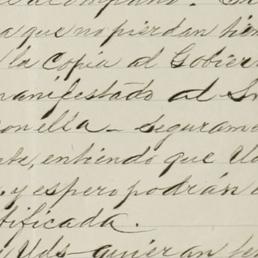 a que no pierdan tiem
la Copia al Gobier
manifestado al Sr
onella - seguram
te, entiendo que Ud
y espero podrán
tificada.
Uds quieran